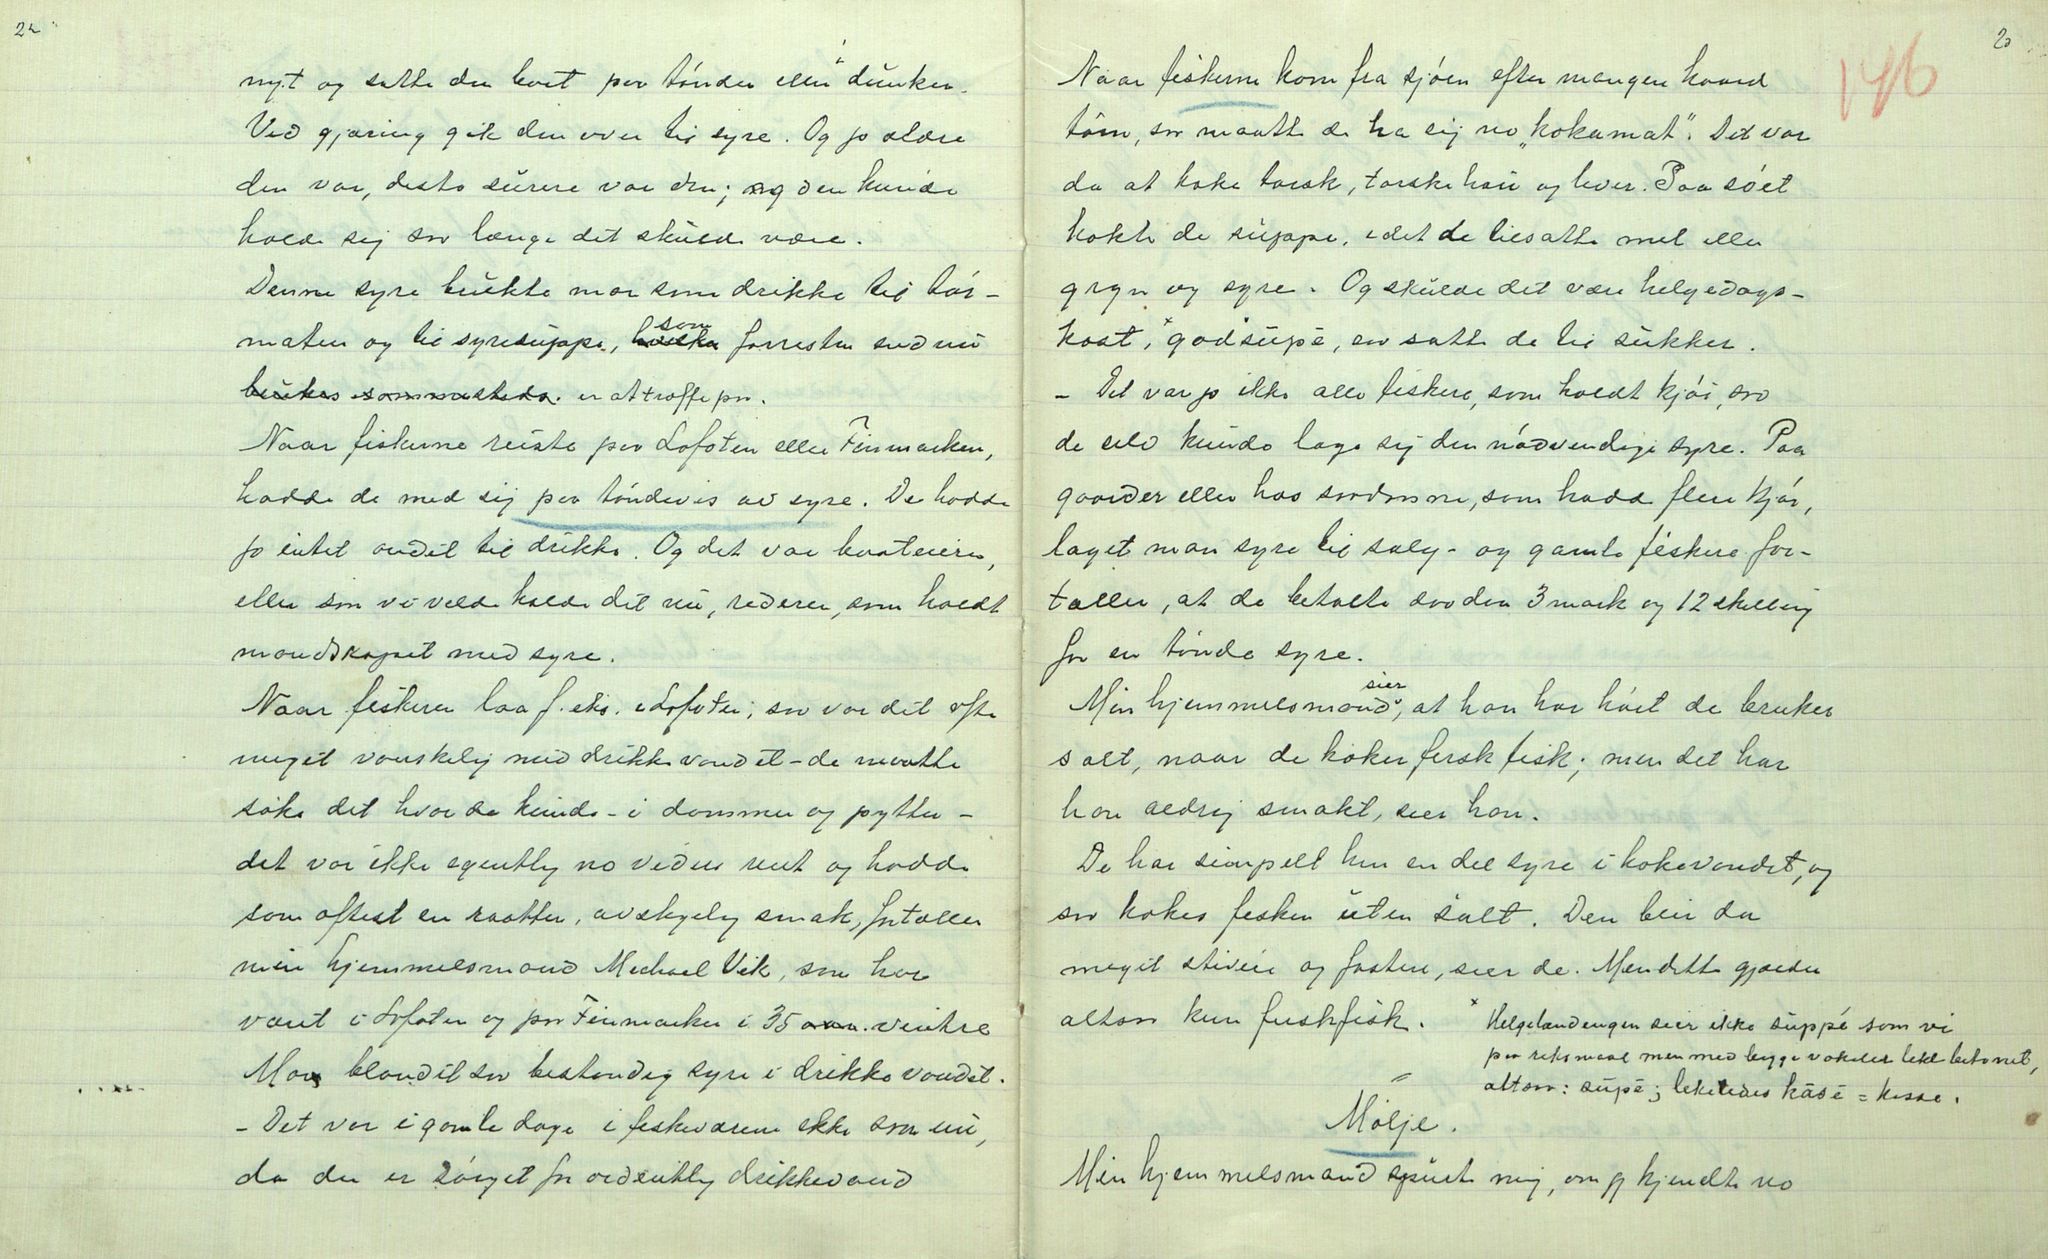 22
nyt og satte den bort paa tønder eller dunker.
Ved gjæring gik den over til syre. Og jo ældre
den var, desto surere var den; og den kunde
holde sig saa længe det skulde være.
Denne syre brukte man som drikke til tør-
maten og til syresuppe, som forresten endnu
brukes sommesteds. er at træffe paa.
Naar fiskerne reiste paa Lofoten eller Finmarken,
hadde de med sig paa tøndevis av syre. De hadde
jo intet andet til drikke. Og det var baateieren,
eller som vi vilde kalde det nu, rederen, som holdt
mandskapet med syre.
Naar fiskeren laa f. eks. i Lofoten, saa var det ofte
meget vanskelig med drikkevandet – de maatte
søke det hvor de kunde – i dammer og pytter –
det var ikke egentlig no videre rent og hadde
som oftest en raatten, avskyelig smak, fortæller
min hjemmelsmand Michael Vik, som har
været i Lofoten og paa Finmarken i 35 vintre
Man blandet saa bestandig syre i drikkevandet.
– Det var i gamle dage i fiskeværene ikke som nu,
da der er sørget for ordentlig drikkevand
146
Naar fiskerne kom fra sjøen efter mangen haard
tørn, saa maatte de ha sig no "kokamat". Det var
da at koke torsk, torskehau og lever. Paa soet
kokte de suppe, idet de tilsatte mel eller
gryn og syre. Og skulde det være helgedags-
kost, x godsupé, saa satte de til sukker.
– Det var jo ikke alle fiskere, som holdt kjør, saa
de selv kunde lage sig den nødvendige syre. Paa
gaarder eller hos saadanne, som hadde flere kjør,
laget man syre til salg – og gamle fiskere for-
tæller, at de betalte saadan 3 mark og 12 skilling
for en tønde syre.
Min hjemmelsmand sier, at han har hørt de bruker
salt, naar de koker fersk fisk; men det har
han aldrig smakt, sier han.
De har simpelt hen en del syre i kokevandet, og
saa kokes fisken uten salt. Den blir da
meget stivere og fastere, sier de. Men dette gjælder
altsaa kun ferskfisk.
x Helgelændingen sier ikke suppé som vi
paa riksmaal men med begge vokaler likt betonet,
altsaa: supé; likeledes kåsé = kasse.
Mølje.
Min hjemmelsmand spurte mig, om jeg kjendte no